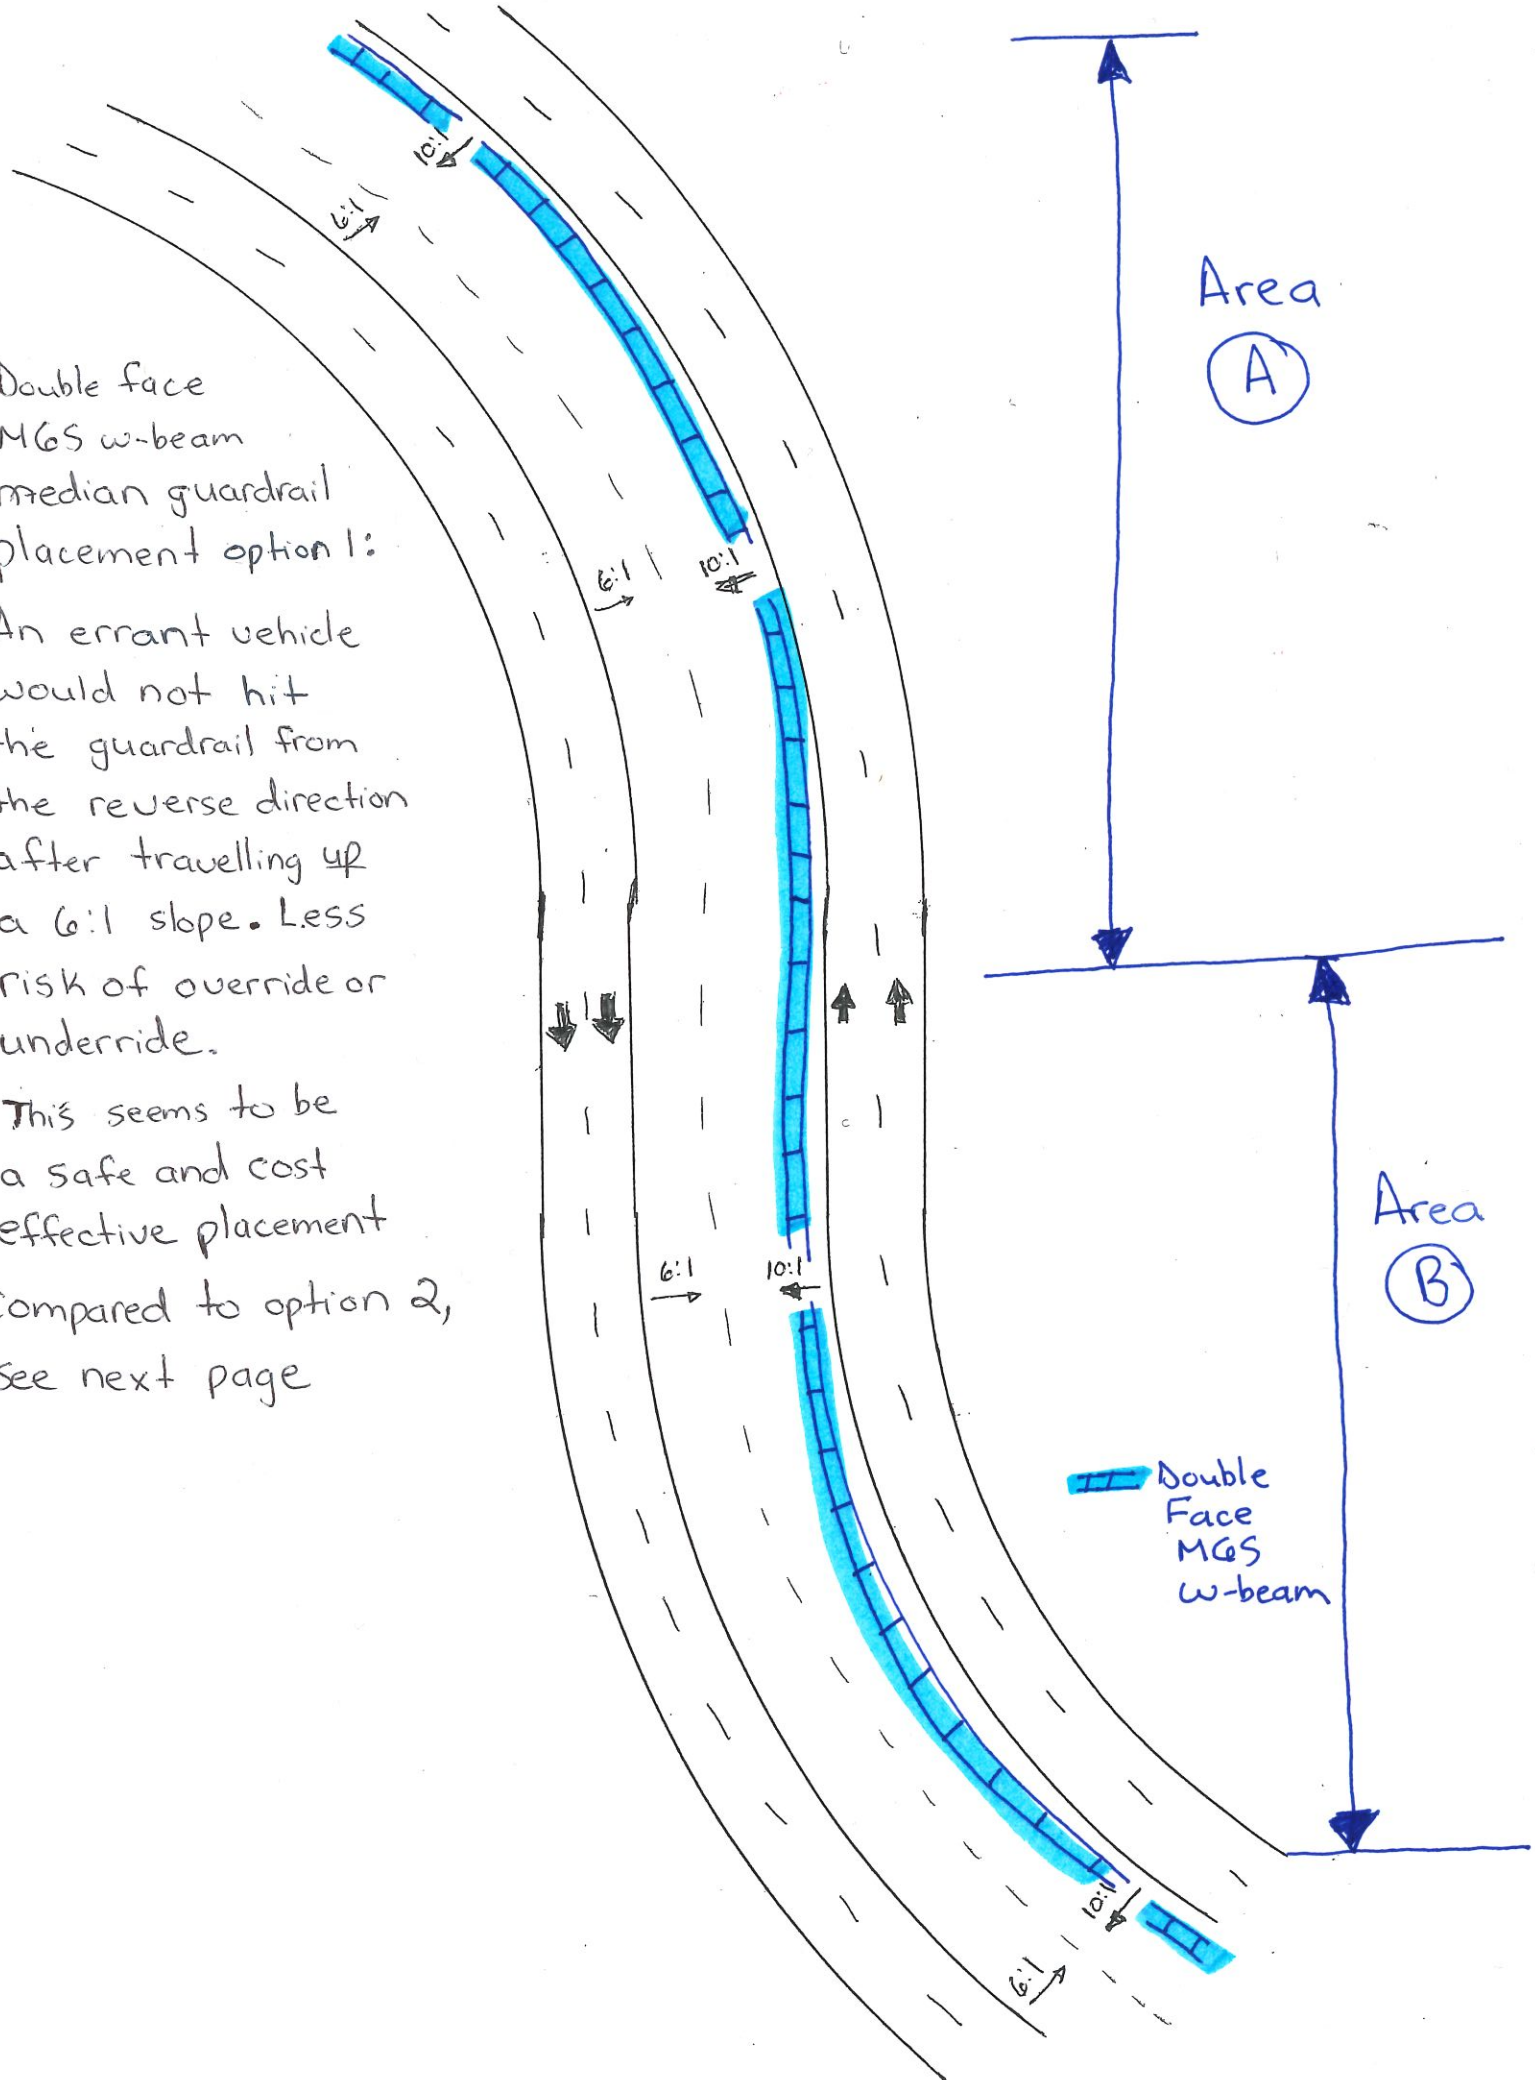 Double face
MGS w-beam
median guardrail
placement option 1:
An errant vehicle
would not hit
the guardrail from
the reverse direction
after travelling up
a 6:1 slope. Less
risk of override or
underride.
This seems to be
a safe and cost
effective placement
compared to option 2,
see next page
10:1
6:1
6:1
10:1
6:1
10:1
10:1
6:1
Area
A
Area
B
Double
Face
MGS
w-beam